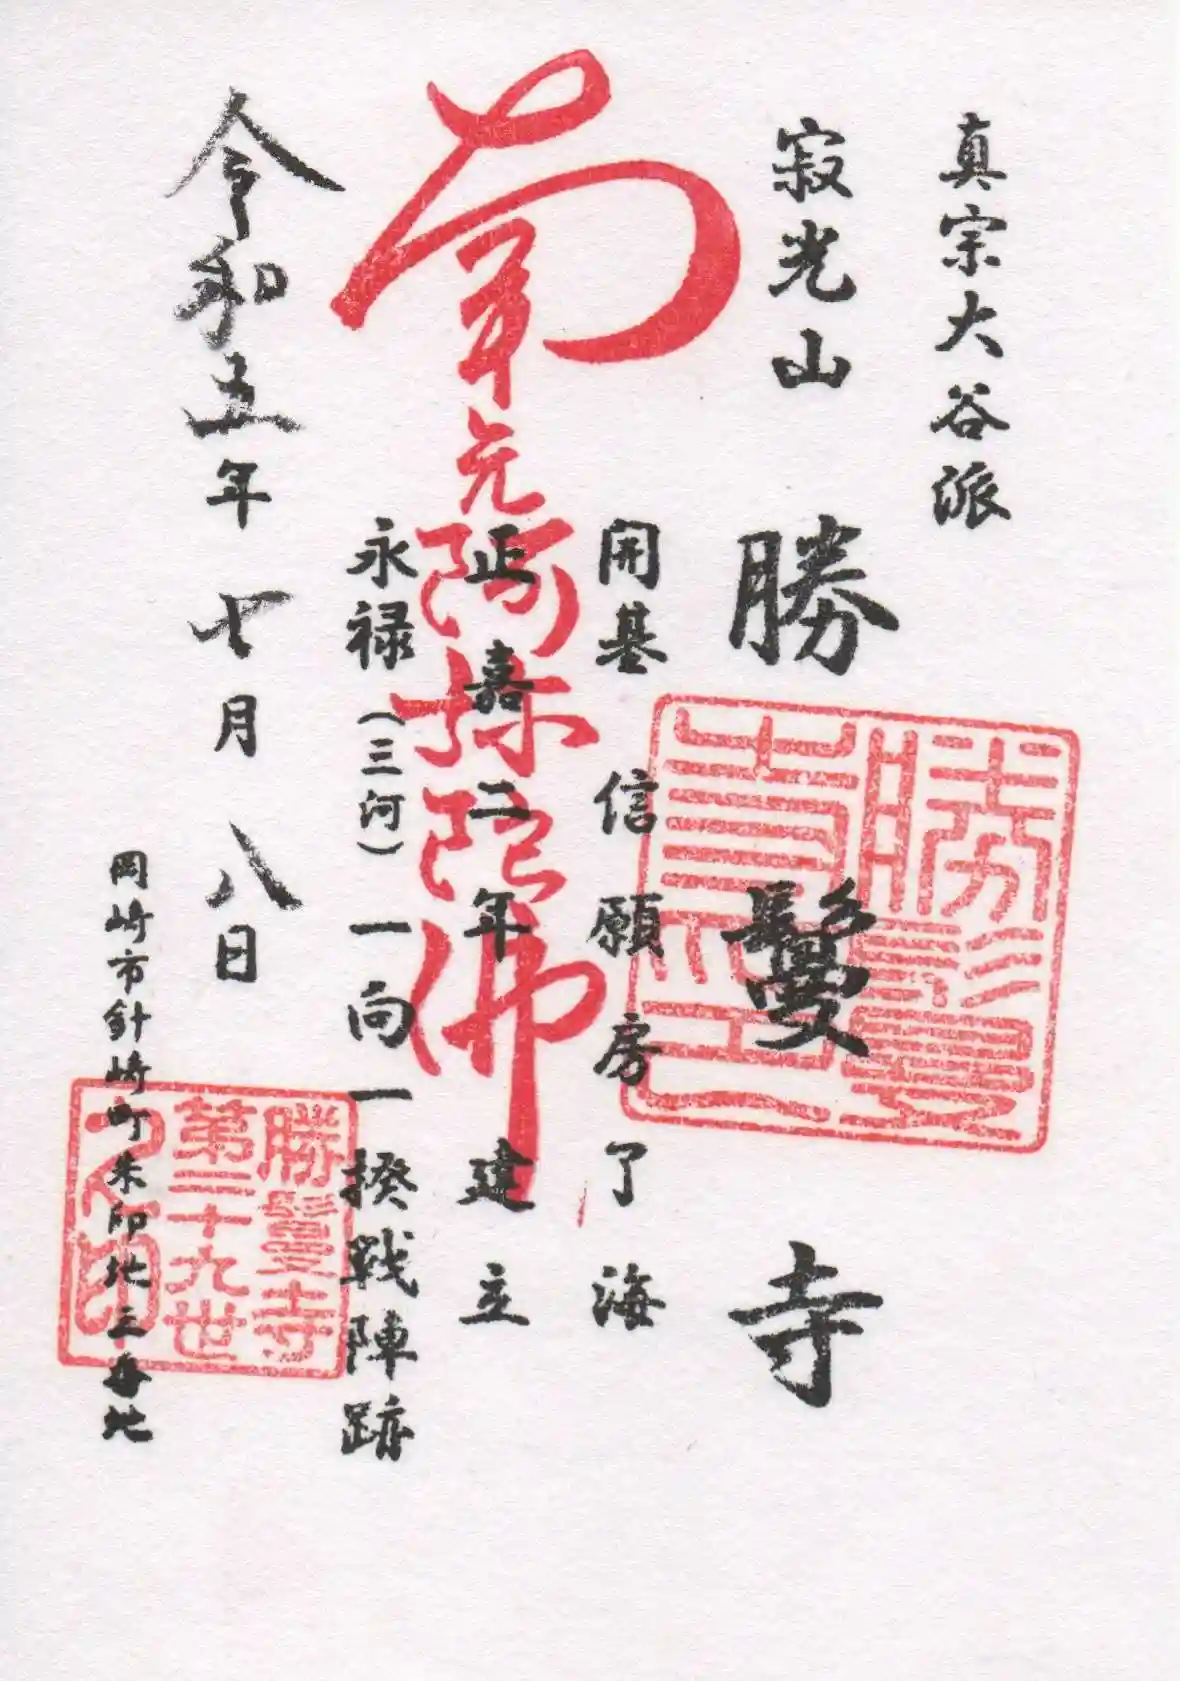 真宗大谷派
寂光山
勝鬘寺
開基 信願房了海
正嘉二年 建立
南無阿弥陀佛
永禄(三河)一向一揆戦陣跡
令和五年 七月 八日
岡崎市針崎町朱印地三番地
勝鬘寺
第二十九世
之印